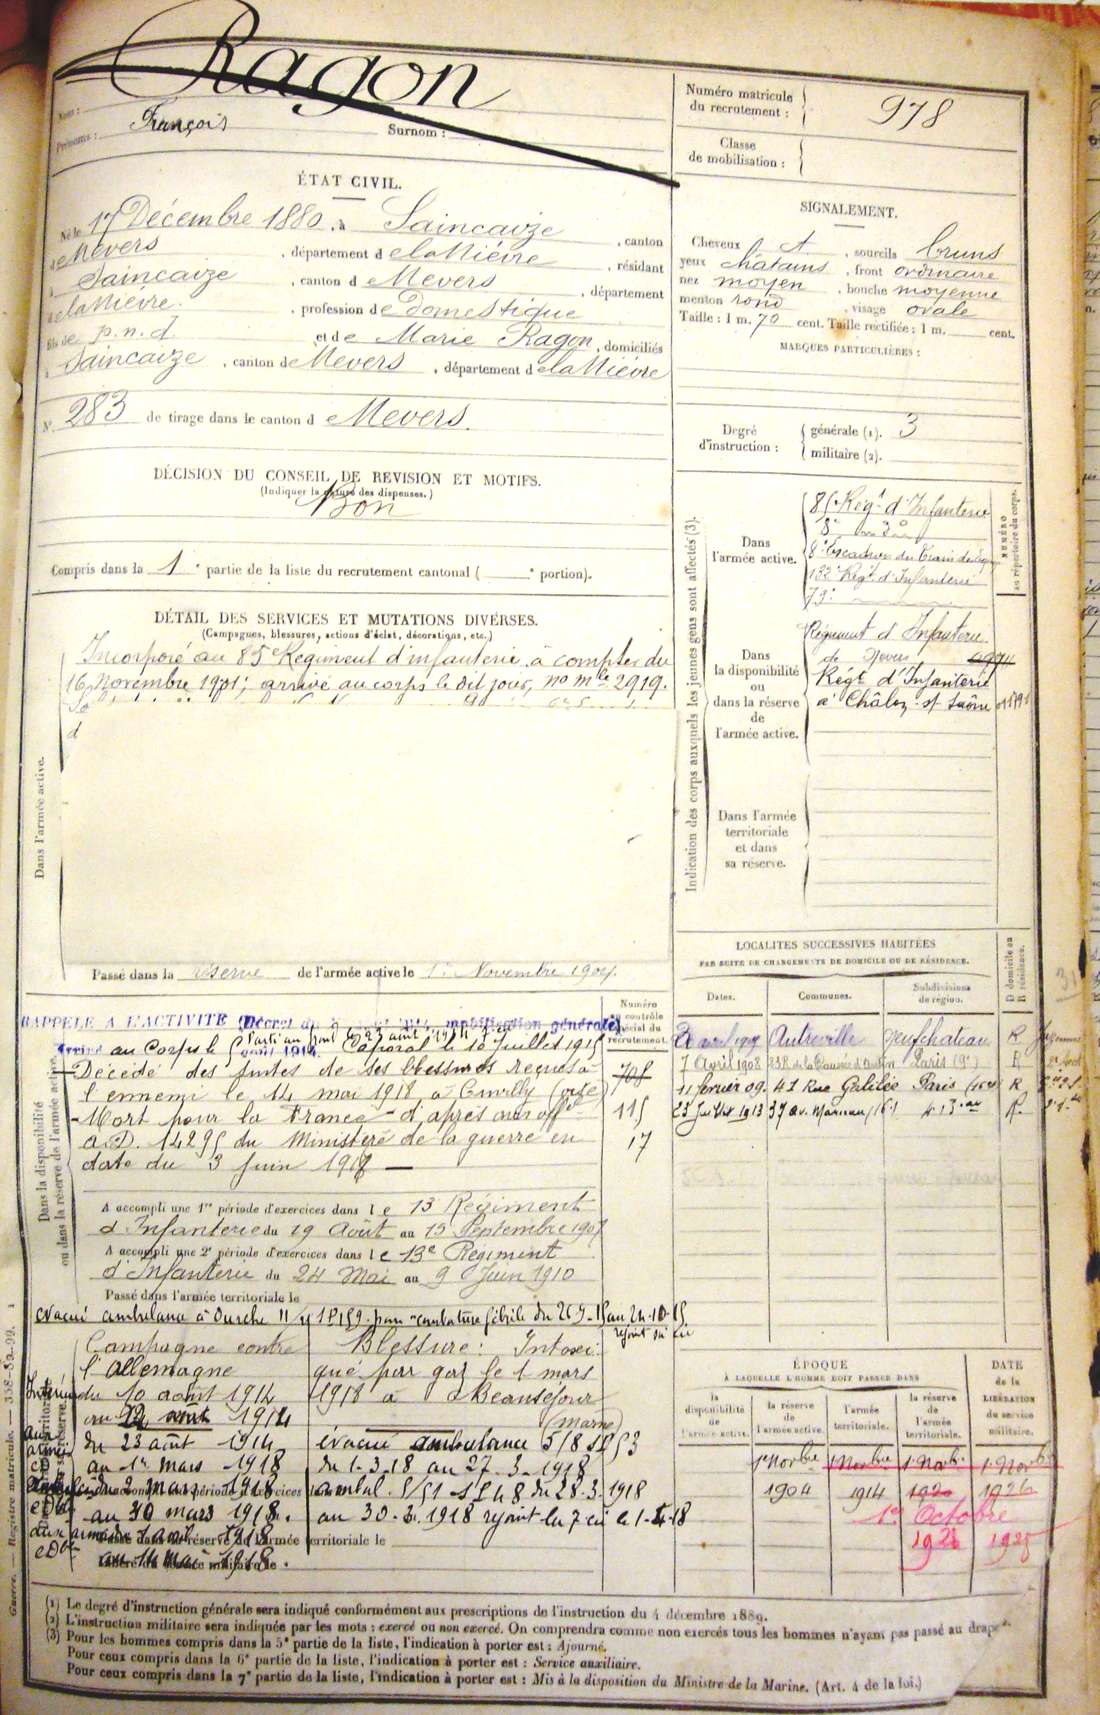 Ragon
Nom :
Prénoms : François Surnom :
Numéro matricule
du recrutement : 978
Classe
de mobilisation :
ÉTAT CIVIL.
Né le 17 Décembre 1880, à Saincaize, canton
de Nevers, département de la Nièvre, résidant
à Saincaize, canton de Nevers, département
de la Nièvre, profession de Domestique
fils de p. n. d. et de Marie Ragon, domiciliés
à Saincaize, canton de Nevers, département de la Nièvre
N° 283 de tirage dans le canton de Nevers.
SIGNALEMENT.
Cheveux et, sourcils bruns
yeux châtains, front ordinaire
nez moyen, bouche moyenne
menton rond, visage ovale
Taille : 1 m. 70 cent. Taille rectifiée : 1 m. cent.
MARQUES PARTICULIÈRES :
Degré
d'instruction :
générale (1). 3
militaire (2).
DÉCISION DU CONSEIL DE REVISION ET MOTIFS.
(Indiquer la nature des dispenses.)
Bon
Compris dans la 1e partie de la liste du recrutement cantonal ( e portion).
DÉTAIL DES SERVICES ET MUTATIONS DIVERSES.
(Campagnes, blessures, actions d'éclat, décorations, etc.)
Dans l'armée active.
Incorporé au 85e Régiment d'infanterie à compter du
16 Novembre 1901; arrivé au corps le dit jour, no mle 2919.
Passé dans la réserve de l'armée active le 1er Novembre 1904.
Indication des corps auxquels les jeunes gens sont affectés (3).
NUMÉRO
au répertoire du corps.
Dans
l'armée active.
85e Régt d'Infanterie
8e Escadron du Train
Régt d'Infanterie
79e
Dans
la disponibilité
ou
dans la réserve
de
l'armée active.
Régiment d'Infanterie
de Nevers
Régt d'Infanterie
à Châlon s/ Saône
Dans l'armée
territoriale
et dans
sa réserve.
Dans la disponibilité
ou dans la réserve de l'armée active.
Numéro
au contrôle
spécial du
recrutement.
RAPPELÉ A L'ACTIVITÉ (Décret du mobilisation générale)
Parti au front le 23 août 1914
Arrivé au Corps le août 1914. Caporal le 10 Juillet 1915
Décédé des suites de ses blessures reçues à
l'ennemi le 14 mai 1918 à Cuvilly (oise)
- Mort pour la France - d'après avis offel
a.D. 14295 du Ministère de la guerre en
date du 3 Juin 1918 —
708
115
17
A accompli une 1re période d'exercices dans le 13 Régiment
d'Infanterie du 19 Août au 15 Septembre 1907
A accompli une 2e période d'exercices dans le 13e Régiment
d'Infanterie du 24 Mai au 9 Juin 1910
Passé dans l'armée territoriale le
Campagne contre
l'Allemagne
Intérieur du 10 août 1914
au 22 août 1914
aux armées du 23 août 1914
au 1er mars 1918
du 2 mars 1918
au 30 mars 1918.
aux armées du 1 avril 1918
au 14 mai 1918.
Blessure : Intoxi-
qué par gaz le 1 mars
1918 à Beauséjour
(marne)
évacué ambulance 5/8 SP 53
du 1-3-18 au 27-3-1918
ambul. 5/51 SP 48 du 28-3-1918
au 30-3-1918 rejoint le 7 cie le 1-4-18
LOCALITÉS SUCCESSIVES HABITÉES
PAR SUITE DE CHANGEMENTS DE DOMICILE OU DE RÉSIDENCE.
Dates. Communes. Subdivisions
de région. D domicile ou
R résidence.
Autreville Neufchateau R
7 Avril 1908 38 R. de la Chaussée d'Antin Paris (9e) R
11 février 09. 41 Rue Galilée Paris (16e) R
23 Juillet 1913 37 av. Marceau (16e) R
ÉPOQUE
À LAQUELLE L'HOMME DOIT PASSER DANS
DATE
de la
LIBÉRATION
du service
militaire.
la
disponibilité
de
l'armée active.
la réserve
de
l'armée active.
l'armée
territoriale.
la réserve
de
l'armée
territoriale.
1er Novbre 1er Novbre 1er Novb. 1er Novbre
1904 1914 1920 1926
1er Octobre
1925
(1) Le degré d'instruction générale sera indiqué conformément aux prescriptions de l'instruction du 4 décembre 1889.
(2) L'instruction militaire sera indiquée par les mots : exercé ou non exercé. On comprendra comme non exercés tous les hommes n'ayant pas passé au drapeau.
(3) Pour les hommes compris dans la 5e partie de la liste, l'indication à porter est : Ajourné.
Pour ceux compris dans la 6e partie de la liste, l'indication à porter est : Service auxiliaire.
Pour ceux compris dans la 7e partie de la liste, l'indication à porter est : Mis à la disposition du Ministre de la Marine. (Art. 4 de la loi.)